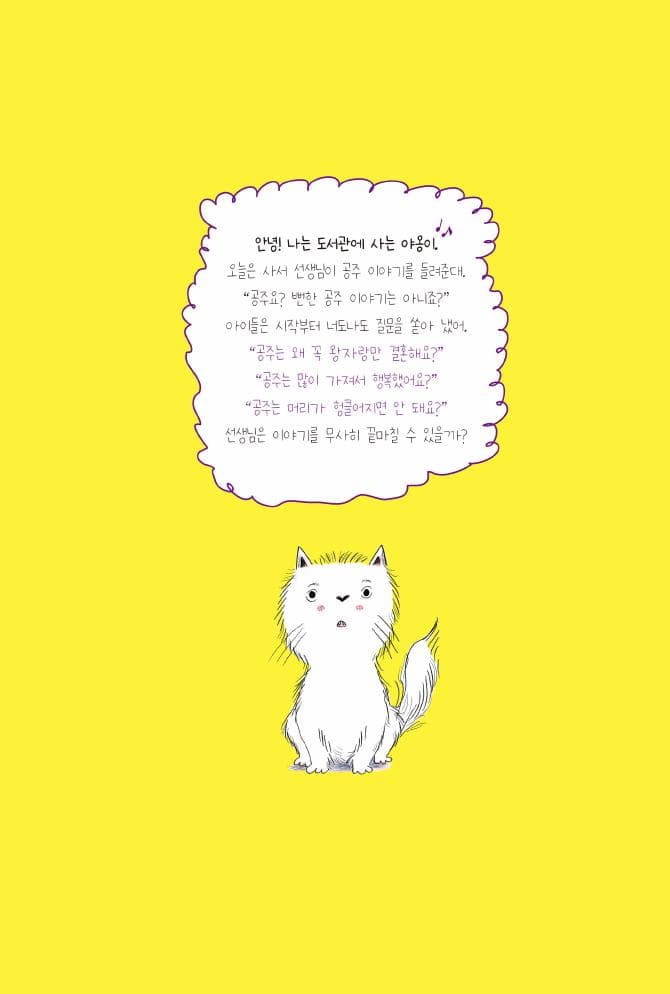 안녕! 나는 도서관에 사는 야옹이.
오늘은 사서 선생님이 공주 이야기를 들려준대.
“공주요? 뻔한 공주 이야기는 아니죠?”
아이들은 시작부터 너도나도 질문을 쏟아 냈어.
“공주는 왜 꼭 왕자랑만 결혼해요?”
“공주는 많이 가져서 행복했어요?”
“공주는 머리가 헝클어지면 안 돼요?”
선생님은 이야기를 무사히 끝마칠 수 있을까?